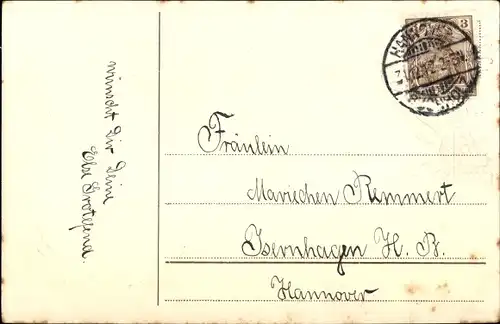 wünscht Dir Deine
Else Grotefend.
HANNOVER
3
Fräulein
Mariechen Remmert
Isernhagen H. B.
Hannover